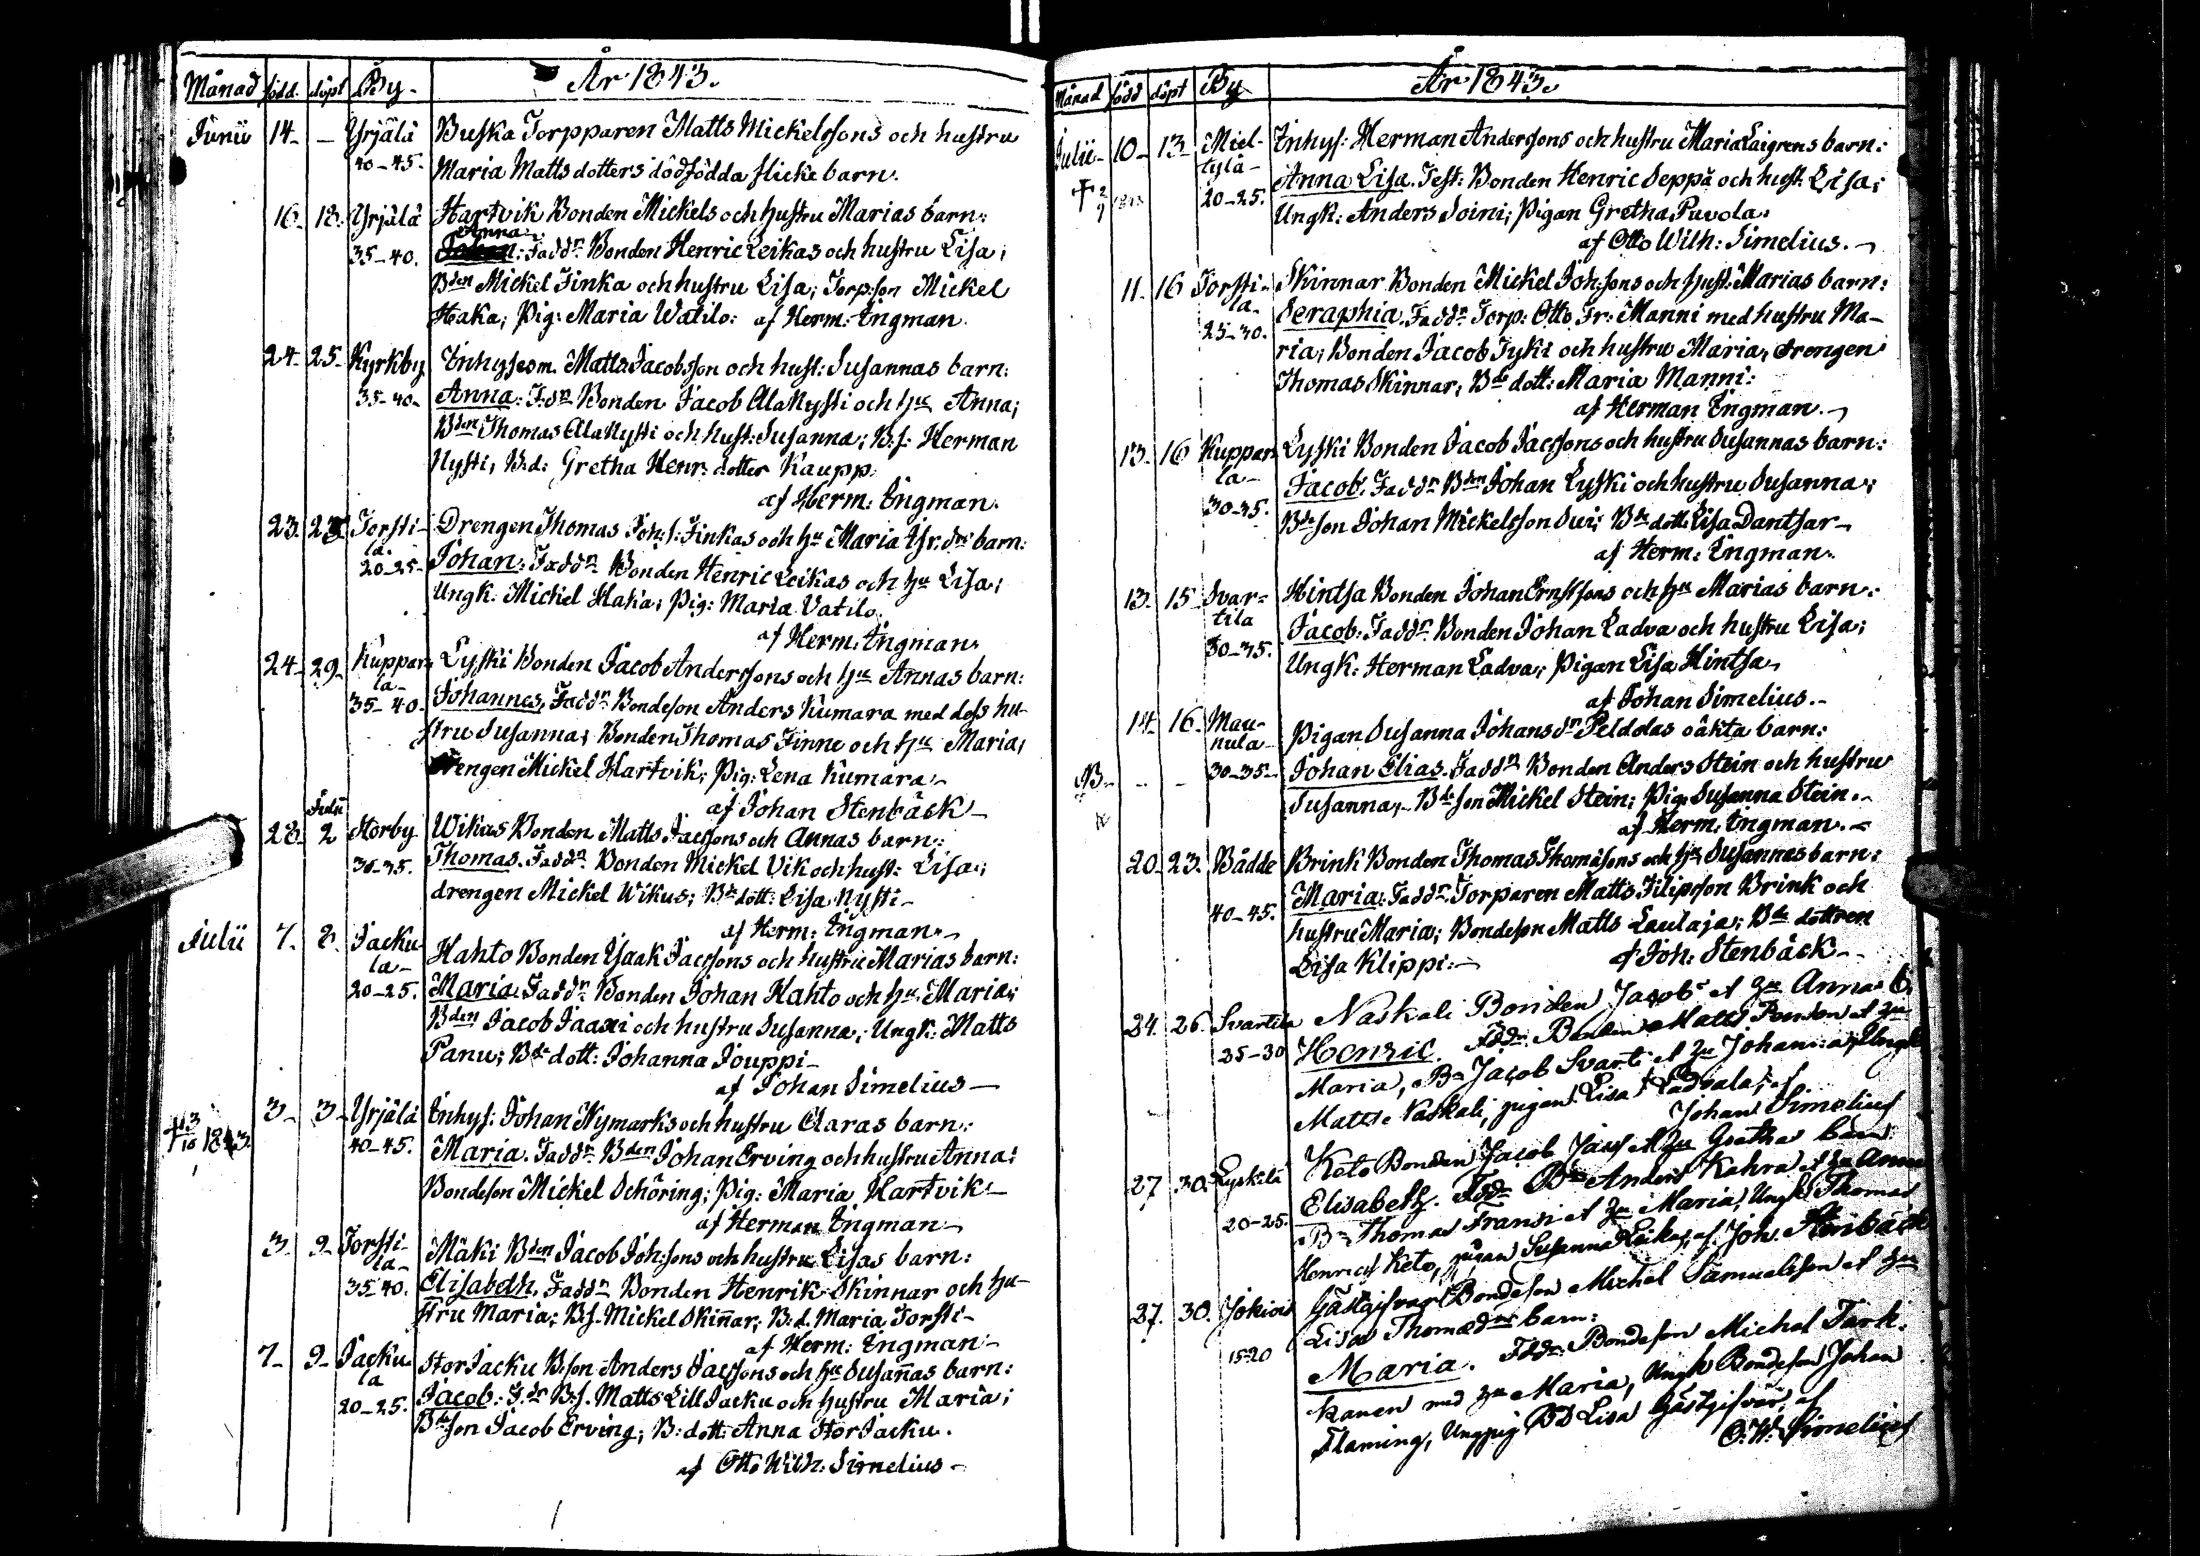 År 1843.
Månad född. döpt By.
Junii 14. — Yrjälä Buska Torpparen Matts Mickelssons och hustru
40–45. Maria Matts dotters dödfödda flicke barn.
16. 18. Yrjälä Hartvik Bonden Mickels och hustru Marias barn:
Anna
35–40. Faddr: Bonden Henric Leikas och hustru Lisa;
Bden Mickel Finka och hustru Lisa; Torp:son Mickel
Haka; Pig: Maria Watilo: af Herm: Engman.
24. 25. Kyrkby Inhyses m. Matts Jacobsson och hust: Susannas barn:
35–40. Anna: F:dr Bonden Jacob Alanysti och hu Anna;
Bden Thomas Alanysti och hust: Susanna; B.s: Herman
Nysti; B.d: Gretha Henr: dotter Kaupp:
af Herm: Engman.
23. 25. Torsti- Drengen Thomas Joh:s: Finkas och hu Maria barn:
la.
20–25. Johan: Faddr Bonden Henric Leikas och hu Lisa;
Ungk: Mickel Haka; Pig: Maria Vatilo.
af Herm: Engman.
24. 29. Kuppar- Lyski Bonden Jacob Anderssons och hu Annas barn:
la–
35–40. Johannes, Faddr Bondeson Anders Kumara med dess hu-
stru Susanna; Bonden Thomas Finne och hu Maria;
Drengen Mickel Hartvik; Pig: Lena Kumara–
af Johan Stenbäck–
Julii
28. 2 Storby Wikas Bonden Matts Jacssons och Annas barn:
30–35. Thomas. Faddr Bonden Mickel Vik och hust: Lisa;
drengen Mickel Wikus; Bde dott: Lisa Nysti–
af Herm: Engman–
Julii 7. 8. Jacku- Hahto Bonden Ysaak Jacssons och hustru Marias barn:
la–
20–25. Maria. Faddr Bonden Johan Hahto och hu Maria;
Bden Jacob Jaaxi och hustru Susanna; Ungk: Matts
Panu; Bde dott: Johanna Jouppi–
af Johan Simelius–
3– 3– Yrjälä Inhys: Johan Nymarks och hustru Claras barn:
† 1843. 40–45. Maria. Faddr Bden Johan Erving och hustru Anna:
Bondeson Mickel Schöring; Pig: Maria Hartvik–
af Herman Engman–
3– 9– Torsti- Mäki Bden Jacob Joh:sons och hustru Lisas barn:
la–
35–40. Elisabeth. Faddr Bonden Henrik Skinnar och hu-
stru Maria; B.s. Mickel Skinnar; B.d. Maria Torsti–
af Herm: Engman–
7– 9– Jacku- Stor Jacku B.son Anders Jacssons och hu Susannas barn:
la
20–25. Jacob: F:dr B.s. Matts Lill Jacku och hustru Maria;
Bde son Jacob Erving; B: dott: Anna Stor Jacku.
af Otto Wilh: Simelius–
År 1843.
Månad född döpt By
Julii– 10– 13– Miel- Inhys: Herman Anderssons och hustru Maria Laigrens barn:
tylä–
† 20–25. Anna Lisa. Test: Bonden Henric Seppä och hust: Lisa;
Ungk: Anders Soini; Pigan Gretha Puvola.
af Otto Wilh: Simelius.–
11. 16 Torsti- Skinnar Bonden Mickel Joh:sons och hust: Marias barn:
la–
25–30. Seraphia. Faddr Torp: Otto Fr: Manni med hustru Ma-
ria; Bonden Jacob Tyki och hustru Maria; drengen
Thomas Skinnar; Bde dott: Maria Manni:
af Herman Engman.–
13. 16 Kuppar- Lyski Bonden Jacob Jacssons och hustru Susannas barn:
la–
30–35. Jacob. Faddr Bden Johan Lyski och hustru Susanna;
Bde son Johan Mickelsson Sui; Bde dott: Lisa Dantsar–
af Herm: Engman.
13. 15 Svar- Hintsa Bonden Johan Ernstsons och hu Marias barn:
tila
30–35. Jacob: Faddr Bonden Johan Ladva och hustru Lisa;
Ungk: Herman Ladva; Pigan Lisa Hintsa–
af Johan Simelius.–
14. 16. Mau- Pigan Susanna Johans dr Peldolas oäkta barn:
nula–
NB– 30–35– Johan Elias. Faddr Bonden Anders Stein och hustru
Susanna;– Bde son Mickel Stein; Pig: Susanna Stein.–
af Herm: Engman.–
20– 23. Bådde Brink Bonden Thomas Thomasons och hu Susannas barn:
40–45. Maria: Faddr Torparen Matts Filipsson Brink och
hustru Maria; Bondeson Matts Laulaja; Bde dottren
Lisa Klippi:– af Joh: Stenbäck–
24. 26. Svartila Naskali Bonden Jacobs et hu Annas b.
25–30 Henric. Fddr Bonden Matts et hu
Maria, Bn Jacob Svart et hu Johanna, Ungk
Matts Naskali, pigan Lisa Ladvala; af
Johan Simelius
27 30. Lyskilä Keto Bonden Jacob Jacss et hu Gretha barn:
20–25. Elisabeth. Fddr Bn Anders Kahra et hu Anna
Bn Thomas Fransi et hu Maria, Ungk: Thomas
Henrics Keto, pigan Susanna Leikas, af Joh. Stenbäck
27. 30. Jokiois Gästgifvar Bondeson Michel Samuelsson et hu
Lisa Thomædrs barn:
15–20 Maria. Fddr Bondeson Michel Tark-
kanen med hu Maria, Ungk Bondeson Johan
Flaming, Ungpig BD Lisa Gästgifvar, af
O. W. Simelius